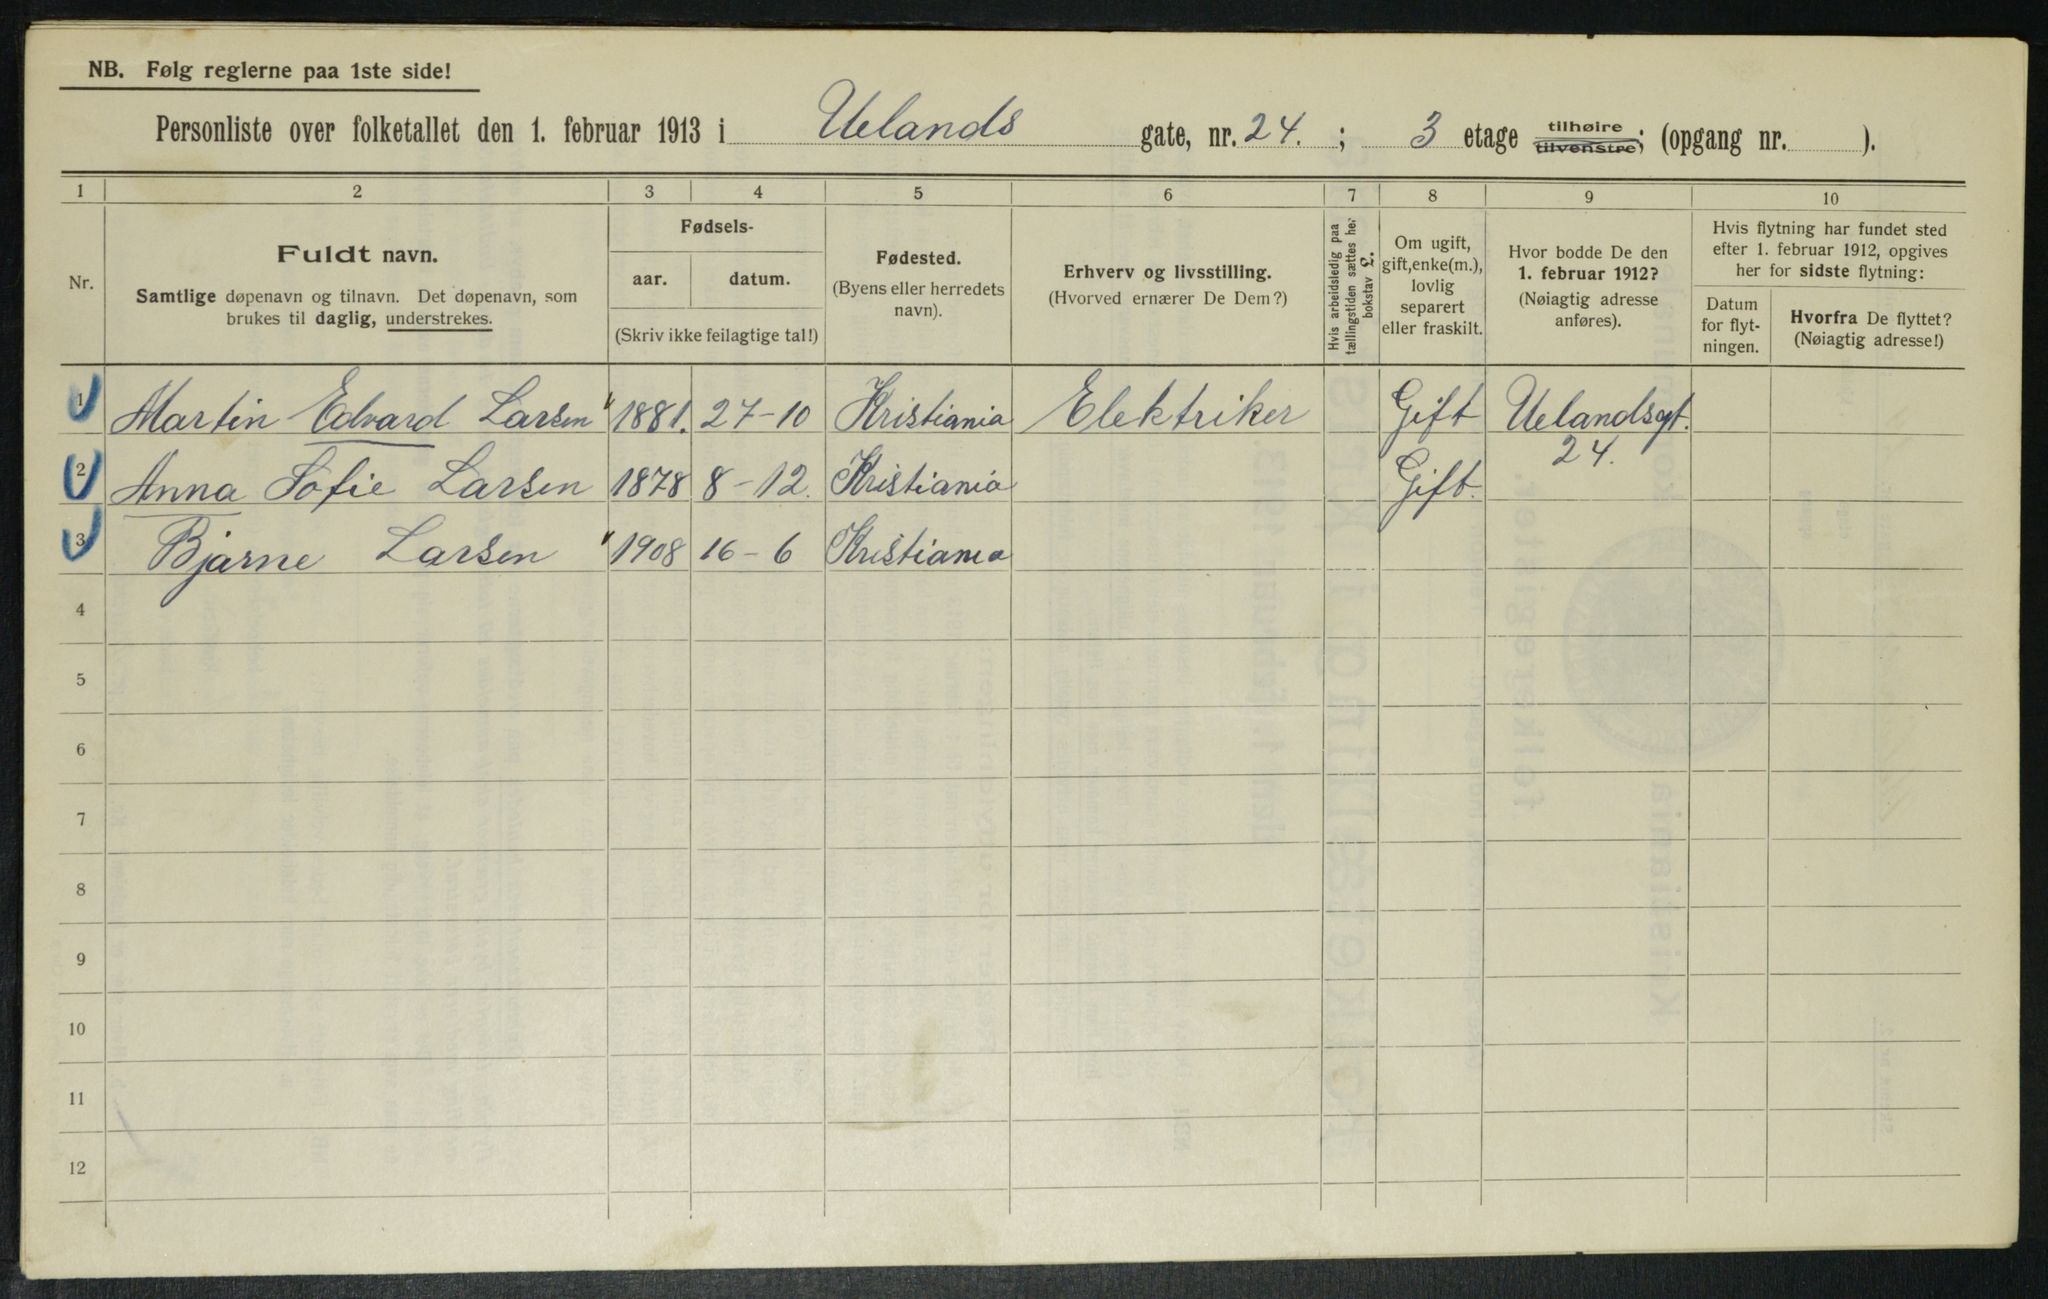 NB. Følg reglerne paa 1ste side!
Personliste over folketallet den 1. februar 1913 i Uelands gate, nr. 24. ; 3 etage tilhøire tilvenstre; (opgang nr. ).
1 2 3 4 5 6 7 8 9 10
Nr.
Fuldt navn.
Samtlige døpenavn og tilnavn. Det døpenavn, som
brukes til daglig, understrekes.
Fødsels-
aar. datum.
(Skriv ikke feilagtige tal!)
Fødested.
(Byens eller herredets
navn).
Erhverv og livsstilling.
(Hvorved ernærer De Dem?)
Hvis arbeidsledig paa
tællingstiden sættes her
bokstav L.
Om ugift,
gift, enke(m.),
lovlig
separert
eller fraskilt.
Hvor bodde De den
1. februar 1912?
(Nøiagtig adresse
anføres).
Hvis flytning har fundet sted
efter 1. februar 1912, opgives
her for sidste flytning:
Datum
for flyt-
ningen.
Hvorfra De flyttet?
(Nøiagtig adresse!)
1 Martin Edvard Larsen 1881. 27-10 Kristiania Elektriker Gift Uelandsgt.
24.
2 Anna Sofie Larsen 1878 8-12. Kristiania Gift.
3 Bjarne Larsen 1908 16-6 Kristiania
4
5
6
7
8
9
10
11
12